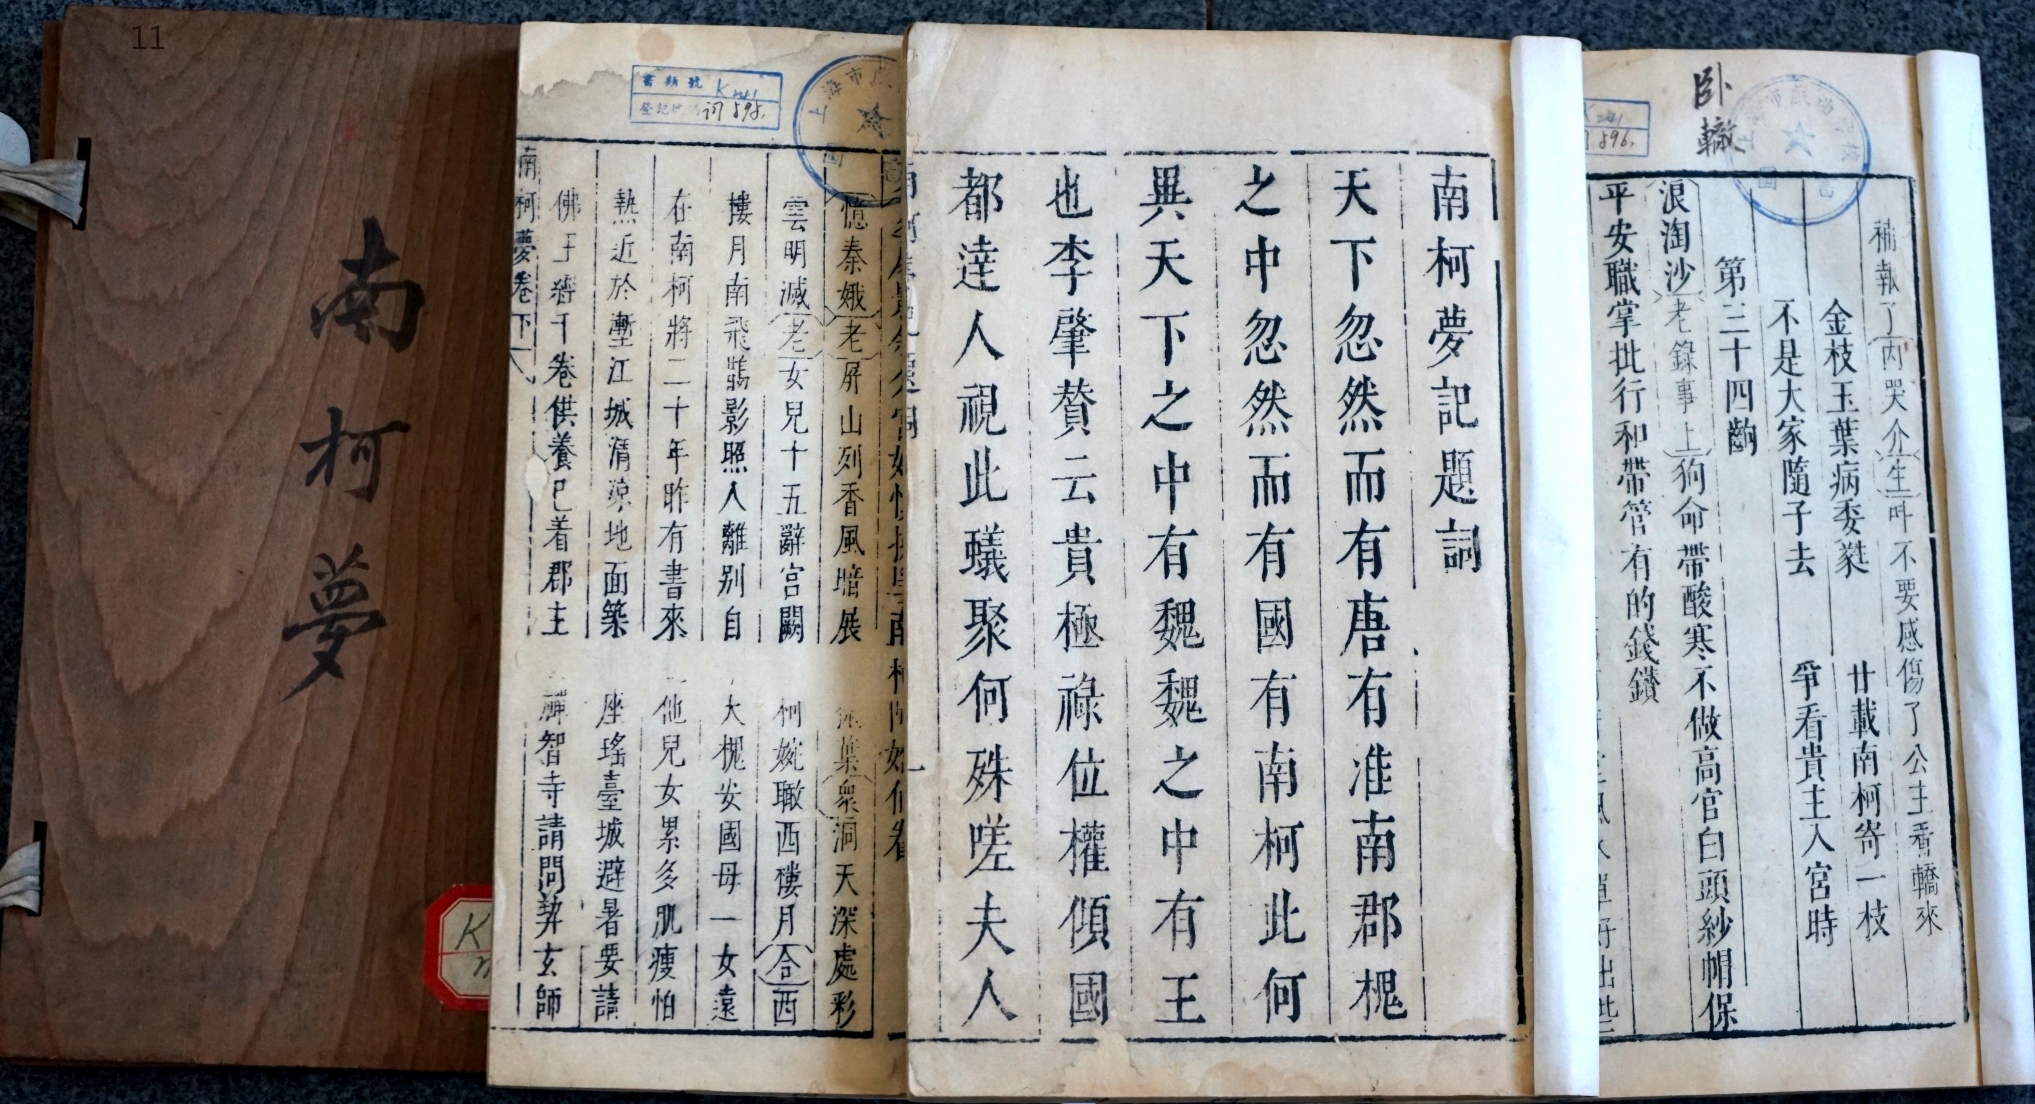 11
南柯夢
書類號 K241
登記號 詞 595.
上海市
圖
憶秦娥老屏山列香風暗展
雲明滅老女兒十五辭宮闕
樓月南飛鵲影照人離別自
在南柯將二十年昨有書來
熱近於塹江城清涼地面築
佛王經千卷供養已着郡主
南柯夢卷下
葉衆洞天深處彩
柯婉瞰西樓月合西
大槐安國母一女遠
他兒女累多肌瘦怕
座瑤臺城避暑要請
禪智寺請問契玄師
南柯夢記題詞
天下忽然而有唐有淮南郡槐
之中忽然而有國有南柯此何
異天下之中有魏魏之中有王
也李肇贊云貴極祿位權傾國
都達人視此蟻聚何殊嗟夫人
臥轍
596.
報了內哭介生叫不要感傷了公主看轎來
金枝玉葉病委㷀 廿載南柯寄一枝
不是大家隨子去 爭看貴主入宮時
第三十四齣
浪淘沙老錄事上狗命帶酸寒不做高官白頭紗帽保
平安職掌批行和帶管有的錢鑽
K